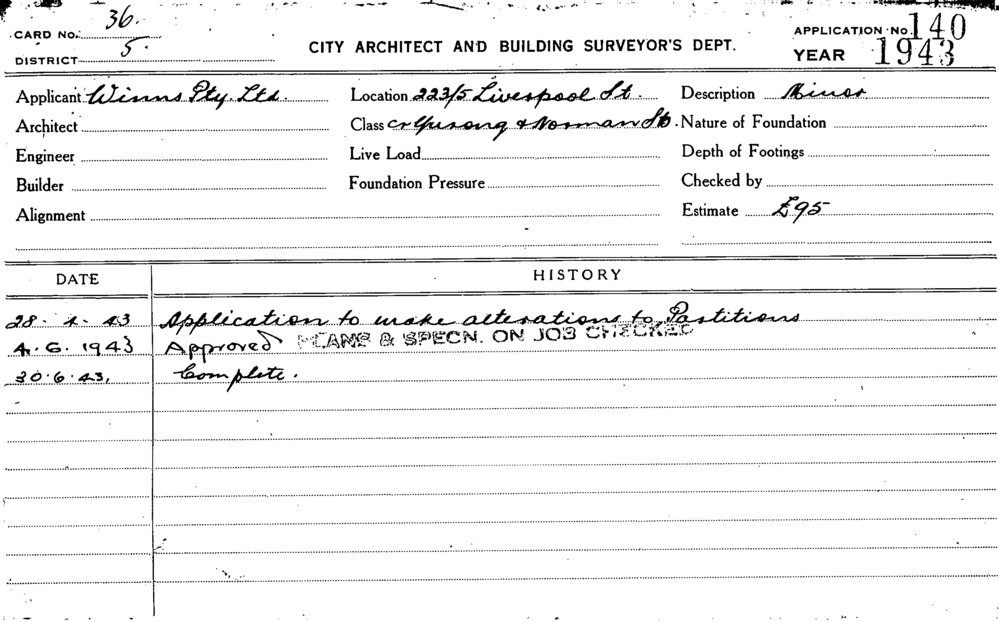 CARD No. 36.
APPLICATION No. 140
DISTRICT 5.
CITY ARCHITECT AND BUILDING SURVEYOR'S DEPT.
YEAR 1943
Applicant Winns Pty. Ltd. Location 223/5 Liverpool St. Description Minor
Architect Class Cr Yurong & Norman Sts. Nature of Foundation
Engineer Live Load Depth of Footings
Builder Foundation Pressure Checked by
Alignment Estimate £95
DATE HISTORY
28. 4. 43 Application to make alterations to Partitions
4. 6. 1943 Approved PLANS & SPECN. ON JOB CHECKED
30.6.43. Complete.